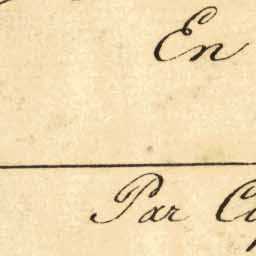 En
Par